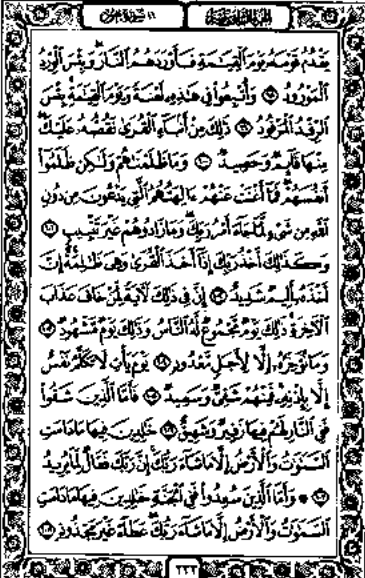 يَقْدُمُ قَوْمَهُۥ يَوْمَ ٱلْقِيَٰمَةِ فَأَوْرَدَهُمُ ٱلنَّارَ وَبِئْسَ ٱلْوِرْدُ
ٱلْمَوْرُودُ ٩٨ وَأُتْبِعُوا۟ فِى هَٰذِهِۦ لَعْنَةً وَيَوْمَ ٱلْقِيَٰمَةِ بِئْسَ
ٱلرِّفْدُ ٱلْمَرْفُودُ ٩٩ ذَٰلِكَ مِنْ أَنۢبَآءِ ٱلْقُرَىٰ نَقُصُّهُۥ عَلَيْكَ
مِنْهَا قَآئِمٌ وَحَصِيدٌ ١٠٠ وَمَا ظَلَمْنَٰهُمْ وَلَٰكِن ظَلَمُوٓا۟
أَنفُسَهُمْ فَمَآ أَغْنَتْ عَنْهُمْ ءَالِهَتُهُمُ ٱلَّتِى يَدْعُونَ مِن دُونِ
ٱللَّهِ مِن شَىْءٍ لَّمَّا جَآءَ أَمْرُ رَبِّكَ وَمَا زَادُوهُمْ غَيْرَ تَتْبِيبٍ ١٠١
وَكَذَٰلِكَ أَخْذُ رَبِّكَ إِذَآ أَخَذَ ٱلْقُرَىٰ وَهِىَ ظَٰلِمَةٌ إِنَّ
أَخْذَهُۥٓ أَلِيمٌ شَدِيدٌ ١٠٢ إِنَّ فِى ذَٰلِكَ لَءَايَةً لِّمَنْ خَافَ عَذَابَ
ٱلْءَاخِرَةِ ذَٰلِكَ يَوْمٌ مَّجْمُوعٌ لَّهُ ٱلنَّاسُ وَذَٰلِكَ يَوْمٌ مَّشْهُودٌ ١٠٣
وَمَا نُؤَخِّرُهُۥٓ إِلَّا لِأَجَلٍ مَّعْدُودٍ ١٠٤ يَوْمَ يَأْتِ لَا تَكَلَّمُ نَفْسٌ
إِلَّا بِإِذْنِهِۦ فَمِنْهُمْ شَقِىٌّ وَسَعِيدٌ ١٠٥ فَأَمَّا ٱلَّذِينَ شَقُوا۟
فَفِى ٱلنَّارِ لَهُمْ فِيهَا زَفِيرٌ وَشَهِيقٌ ١٠٦ خَٰلِدِينَ فِيهَا مَا دَامَتِ
ٱلسَّمَٰوَٰتُ وَٱلْأَرْضُ إِلَّا مَا شَآءَ رَبُّكَ إِنَّ رَبَّكَ فَعَّالٌ لِّمَا يُرِيدُ
١٠٧ ۞ وَأَمَّا ٱلَّذِينَ سُعِدُوا۟ فَفِى ٱلْجَنَّةِ خَٰلِدِينَ فِيهَا مَا دَامَتِ
ٱلسَّمَٰوَٰتُ وَٱلْأَرْضُ إِلَّا مَا شَآءَ رَبُّكَ عَطَآءً غَيْرَ مَجْذُوذٍ ١٠٨